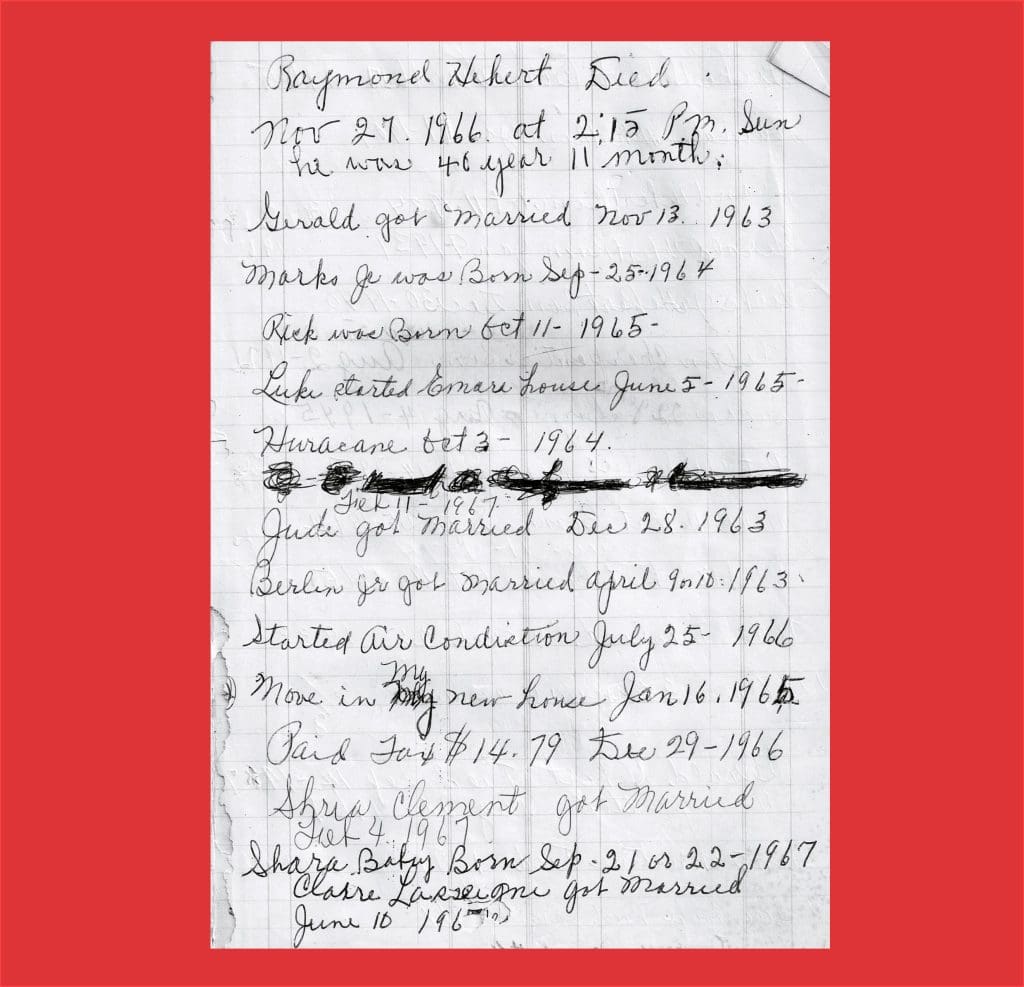 Raymond Hebert Died.
Nov 27. 1966. at 2:15 P.m. Sun
he was 46 year 11 month.
Gerald got Married Nov 13. 1963
Marks Jr was Born Sep-25-1964
Rick was Born Oct 11- 1965-
Luke started Emars house June 5- 1965-
Huracane Oct 3- 1964.
Feb 11- 1967.
Jude got Married Dec 28. 1963
Berlin Jr got Married April 9 or 10. 1963.
Started Air Condiction July 25- 1966
My
Move in new house Jan 16. 1965
Paid Tax $14.79 Dec 29-1966
Shria Clement got Married
Feb 4. 1967
Shara Baby Born Sep. 21 or 22-1967
Claire got Married
June 10